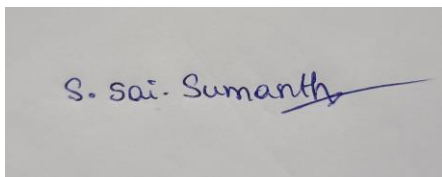 S. Sai. Sumanth